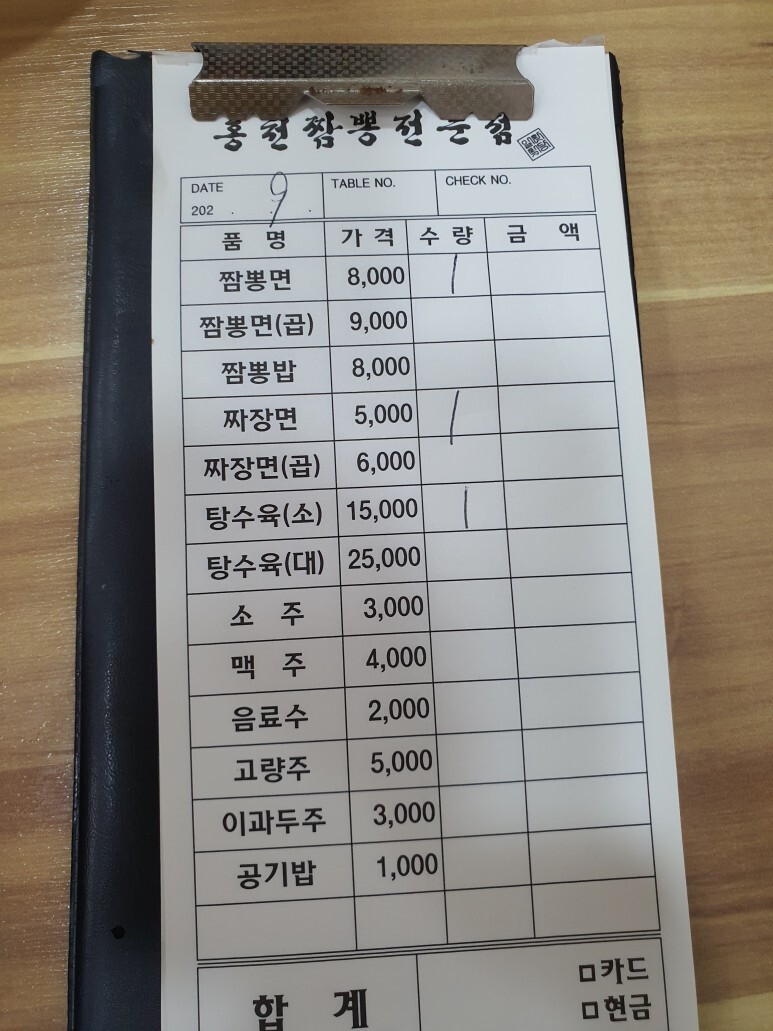 홍천짬뽕전문점
DATE TABLE NO. CHECK NO.
202 . 9 .
품 명 가 격 수 량 금 액
짬뽕면 8,000 /
짬뽕면(곱) 9,000
짬뽕밥 8,000
짜장면 5,000 /
짜장면(곱) 6,000
탕수육(소) 15,000 |
탕수육(대) 25,000
소 주 3,000
맥 주 4,000
음료수 2,000
고량주 5,000
이과두주 3,000
공기밥 1,000
합 계 □카드
□현금